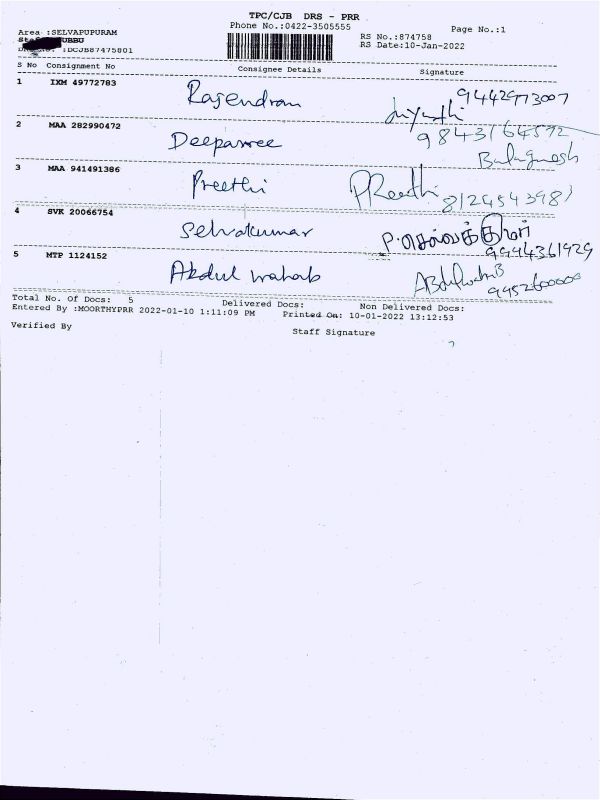 TPC/CJB DRS - PRR
Phone No.:0422-3505555 Page No.:1
Area :SELVAPUPURAM RS No.:874758
UBBU RS Date:10-Jan-2022
:DCJB87475801
S No Consignment No Consignee Details Signature
1 IXM 49772783 Rajendran 9442973007
2 MAA 282990472 Deepasree 9843164572
Balaganesh
3 MAA 941491386 Preethi PReethi 8124543983
4 SVK 20066754 Selvakumar P.செல்வக்குமார்
9994361929
5 MTP 1124152 Abdul wahab ABdulwahaB
9952600000
Total No. Of Docs: 5 Delivered Docs: Non Delivered Docs:
Entered By :MOORTHYPRR 2022-01-10 1:11:09 PM Printed On: 10-01-2022 13:12:53
Verified By Staff Signature